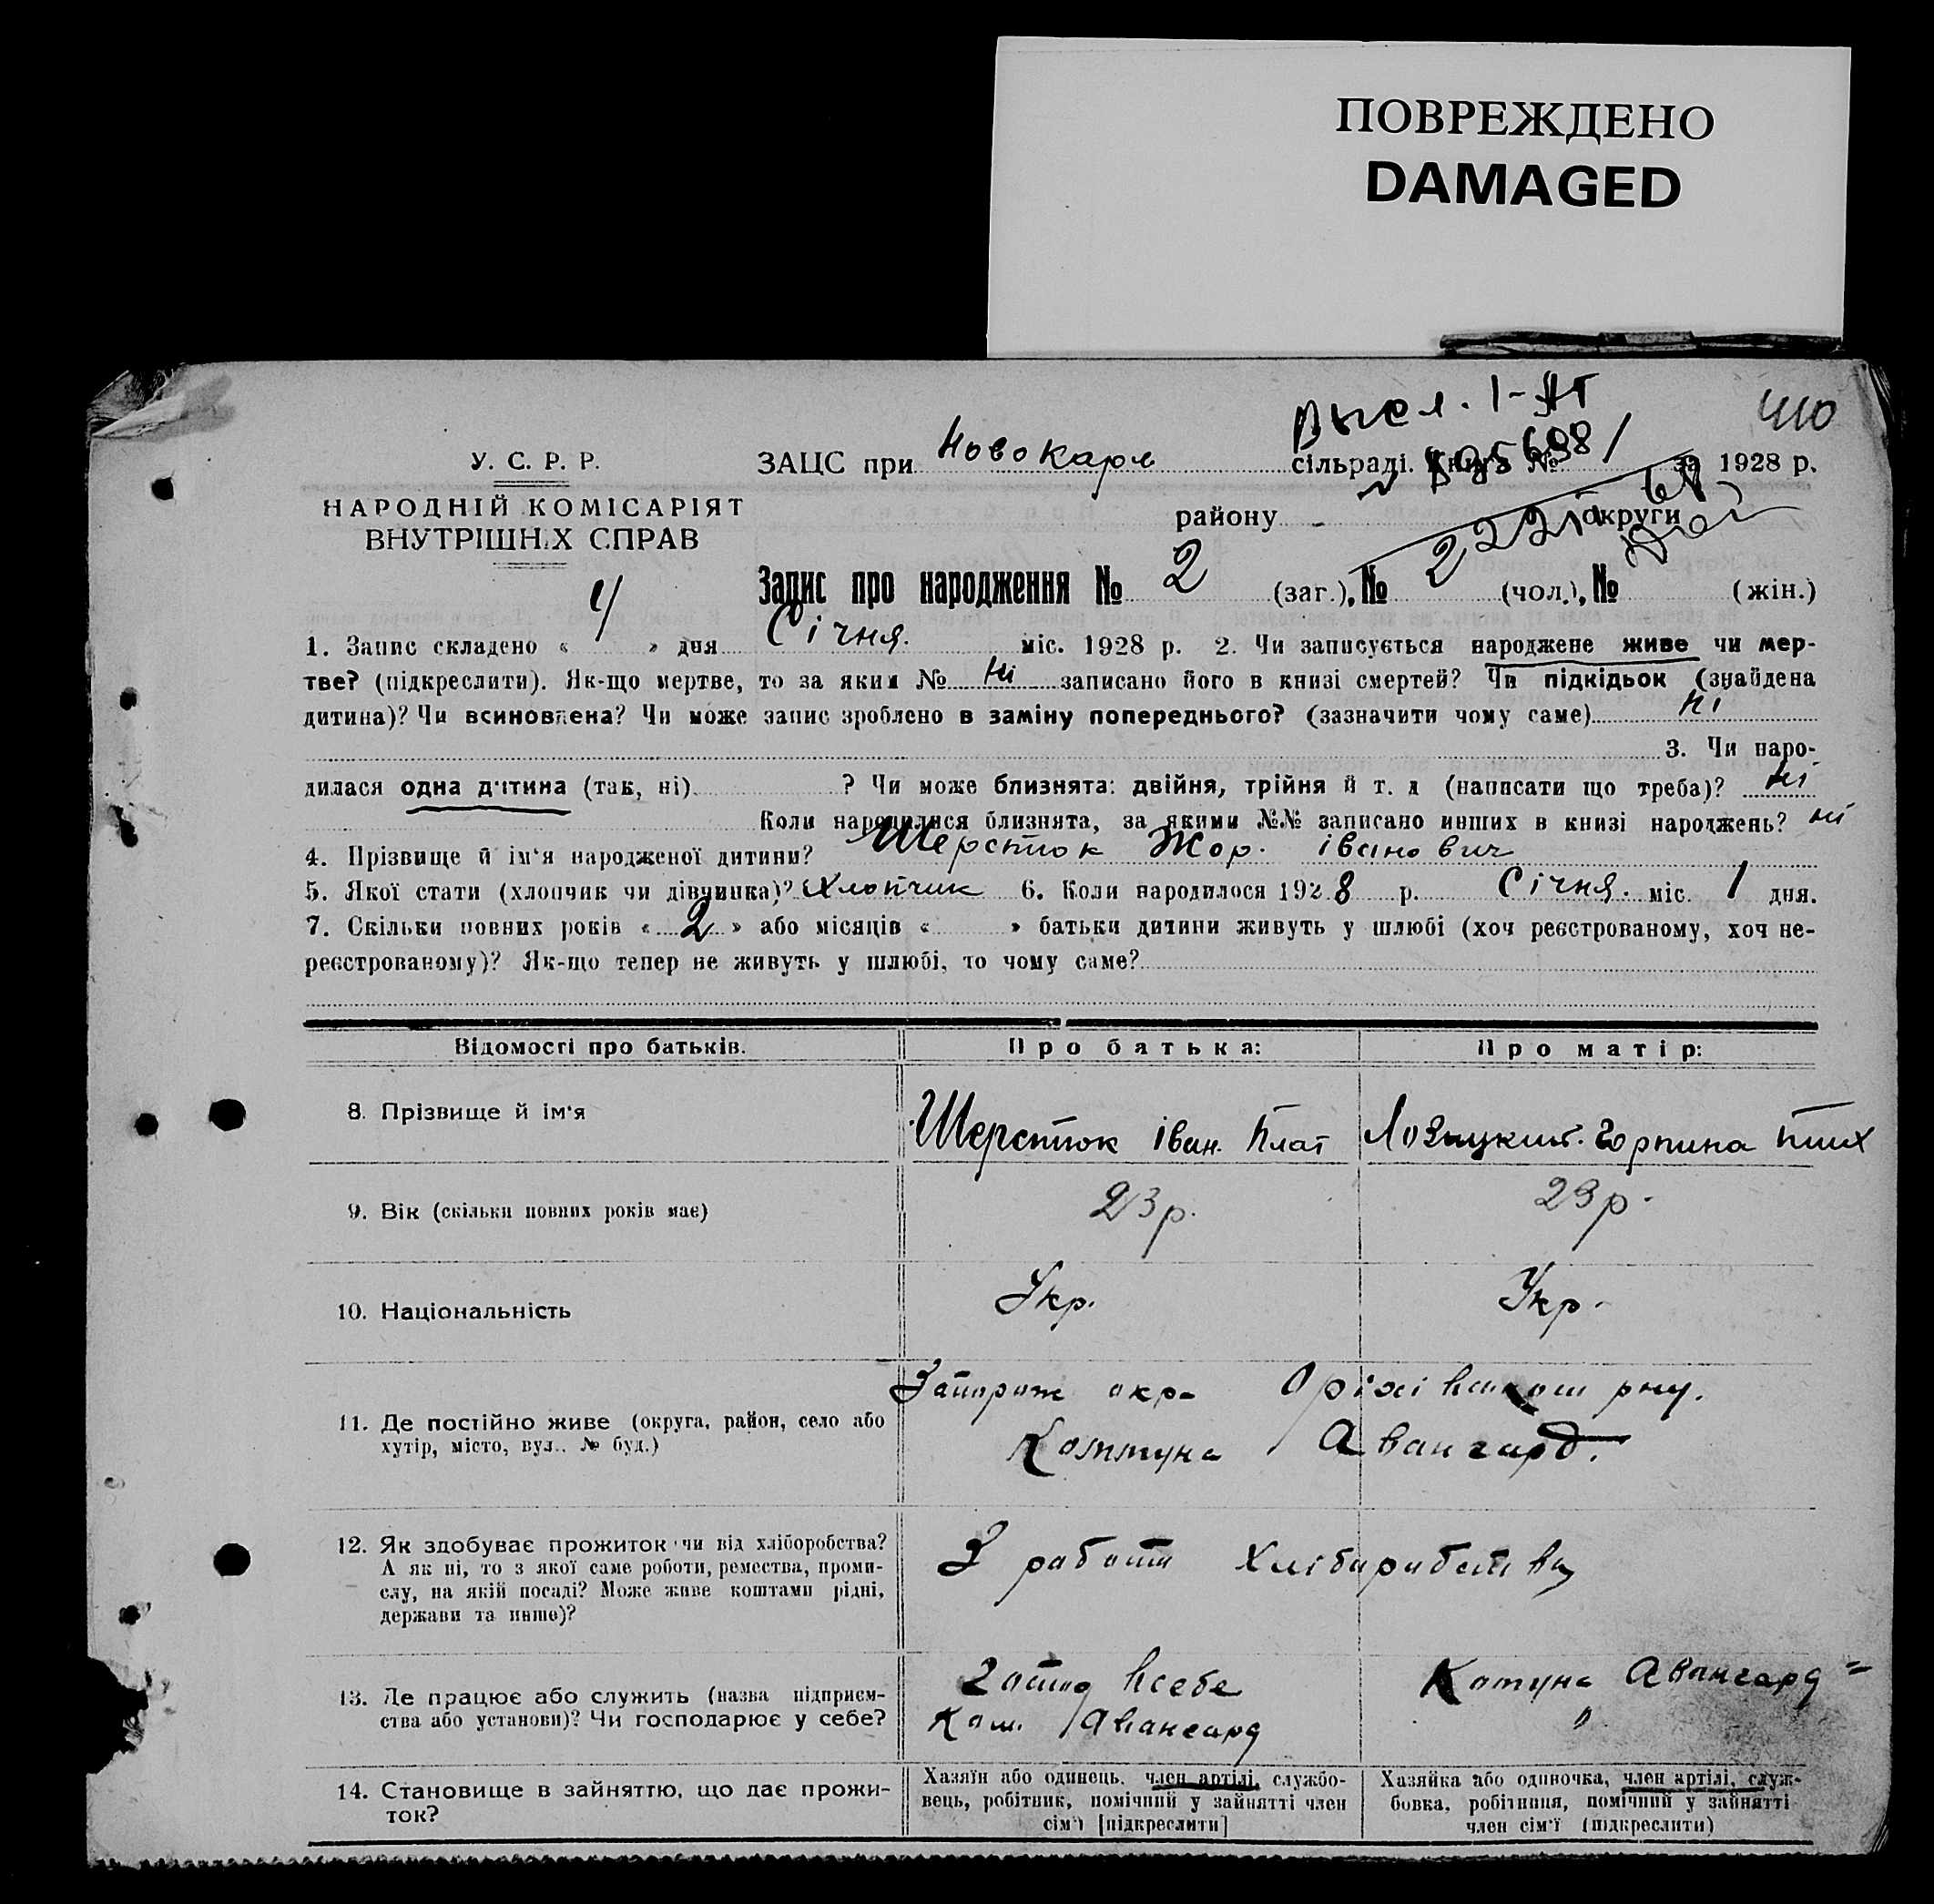 ПОВРЕЖДЕНО
DAMAGED
Высл. 1-
410
У. С. Р. Р.
ЗАЦС при Новокарл сільраді. Книга № за 1928 р.
НАРОДНІЙ КОМІСАРІЯТ
ВНУТРІШНІХ СПРАВ
району - округи
Запис про народження № 2 (заг.), № 2 (чол.), № (жін.)
1. Запис складено « 4 » дня Січня. міс. 1928 р. 2. Чи записується народжене живе чи мер-
тве? (підкреслити). Як-що мертве, то за яким № Ні записано його в книзі смертей? Чи підкідьок (знайдена
дитина)? Чи всиновлена? Чи може запис зроблено в заміну попереднього? (зазначити чому саме) Ні
3. Чи наро-
дилася одна дитина (так, ні) ? Чи може близнята: двійня, трійня й т. д (написати що треба)? Ні
Коли народилися близнята, за якими №№ записано инших в книзі народжень? ні
4. Прізвище й ім'я народженої дитини? Шерстюк Жор. іванович
5. Якої стати (хлопчик чи дівчинка)? Хлопчик 6. Коли народилося 1928 р. Січня. міс. 1 дня.
7. Скільки повних років « 2 » або місяців « » батьки дитини живуть у шлюбі (хоч реєстрованому, хоч не-
реєстрованому)? Як-що тепер не живуть у шлюбі, то чому саме?
Відомості про батьків. Про батька: Про матір:
8. Прізвище й ім'я Шерстюк іван. Плат Горпина
9. Вік (скільки повних років має) 23 р. 23 р.
10. Національність Укр. Укр.
Запорож окр.
11. Де постійно живе (округа, район, село або
хутір, місто, вул., № буд.) Коммуна Авангард.
12. Як здобуває прожиток чи від хліборобства?
А як ні, то з якої саме роботи, ремества, проми-
слу, на якій посаді? Може живе коштами рідні,
держави та инше)?
З работи Хліборобства
13. Де працює або служить (назва підприєм-
ства або установи)? Чи господарює у себе?
Госпо всебе
Ком. Авангард
Комуна Авангард =
"
14. Становище в зайняттю, що дає прожи-
ток?
Хазяїн або одинець, член артілі, службо-
вець, робітник, помічний у зайнятті член
сім'ї [підкреслити]
Хазяйка або одиночка, член артілі, служ-
бовка, робітниця, помічний у зайнятті
член сім'ї (підкреслити)